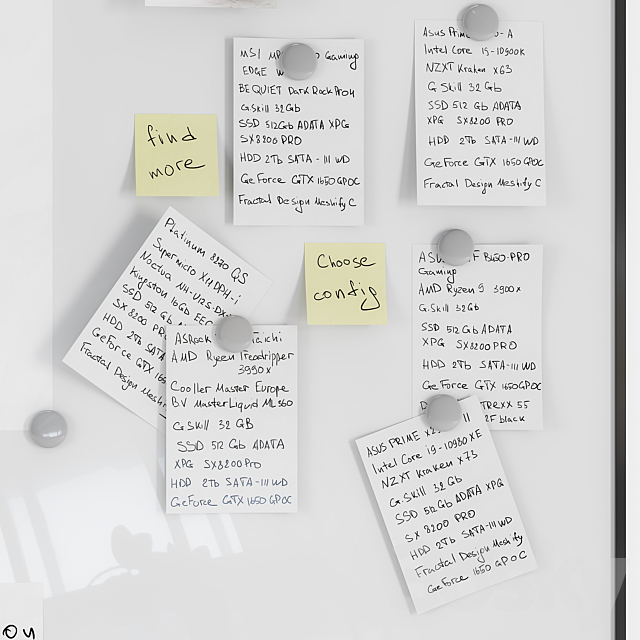 MSI Gaming
EDGE
BE QUIET Dark Rock Pro4
G.Skill 32Gb
SSD 512Gb ADATA XPG
SX8200 PRO
HDD 2Tb SATA-III WD
GeForce GTX 1650 GPOC
Fractal Design Meshify C
Asus Prime -A
Intel Core i9-10900K
NZXT Kraken X63
G.Skill 32Gb
SSD 512 Gb ADATA
XPG SX8200 PRO
HDD 2Tb SATA-III WD
GeForce GTX 1650 GPOC
Fractal Design Meshify C
find
more
Choose
config
Platinum 8270 QS
Supermicro X11DPH-i
Noctua NH-U12S-DX
Kingston 16Gb
SSD 512 Gb
SX 8200 PRO
HDD 2Tb SATA
GeForce GTX
Fractal Design
ASRock Taichi
AMD Ryzen Treadripper
3990x
Cooller Master Europe
B.V MasterLiquid ML360
G.Skill 32 GB
SSD 512 Gb ADATA
XPG SX8200 Pro
HDD 2Tb SATA-III WD
GeForce GTX 1650 GPOC
B450-PRO
Gaming
AMD Ryzen 9 3900x
G.Skill 32Gb
SSD 512 Gb ADATA
XPG SX8200 PRO
HDD 2Tb SATA-III WD
GeForce GTX 1650 GPOC
55
black
ASUS PRIME
Intel Core i9-10980XE
NZXT Kraken x73
G.Skill 32Gb
SSD 512Gb ADATA XPG
SX 8200 PRO
HDD 2Tb SATA-III WD
Fractal Design Meshify
GeForce 1650 GPOC